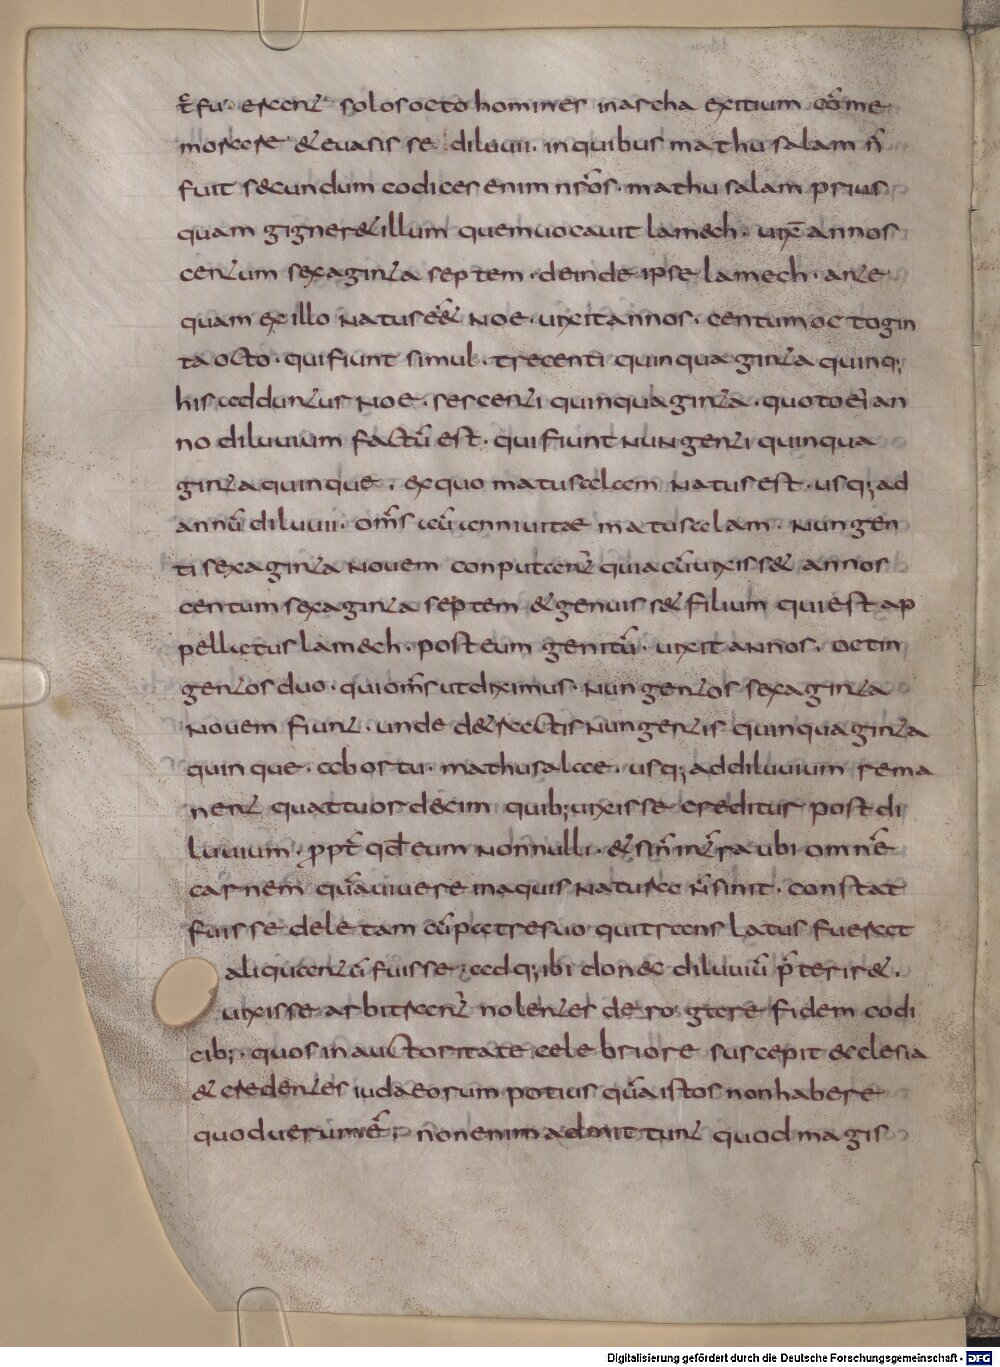 t̄ fu· erant solos octo homines in archa exitium cōme
morare & euasisse diluuii· in quibus mathusalam n̄
fuit secundum codices enim nr̄os· mathusalam prius
quam gigner& illum quem uocauit lamech· uix̄ annos
centum sexaginta septem· deinde ipse lamech· ante
quam ex illo natus ēē& noe· uixit annos· centum octogin
ta octo· qui fiunt simul· trecenti quinquaginta quinq;
his adduntur noe· sescenti quinquaginta· quoto ei an
no diluuium factū est· qui fiunt nungenti quinqua
ginta quinque· ex quo matusalam natus est· usq; ad
annū diluuii· om̄s aū anni uitae matusalam· nungen
ti sexaginta nouem conputant̄ quia cū uixiss& annos
centum sexaginta septem & genuiss& filium qui est ap
pellatus lamech· post eum genitū· uixit annos· octin
gentos duo· qui om̄s ut diximus· nungentos sexaginta
nouem fiunt· unde d&ractis nungentis quinquaginta
quinque· ab ortu· mathusalae· usq; ad diluuium rema
nent quattuordecim quib; uixisse creditur post di
luuium· ꝓpt̄ qđ eum nonnulli· & si n̄ in t̄ra ubi omnē
carnem quā uiuere in aquis natura n̄ sinit· constat
fuisse deletam cū patre suo qui translatus fuerat
aliquantū fuisse· adq; ibi donec diluuiū p̄terir&·
uixisse arbitrant̄ nolentes derogare fidem codi
cib;· quos in auctoritate celebriore suscepit ecclesia
& credentes iudaeorum potius quā istos non habere
quod uerum ē· non enim admittunt quod magis
Digitalisierung gefördert durch die Deutsche Forschungsgemeinschaft - DFG